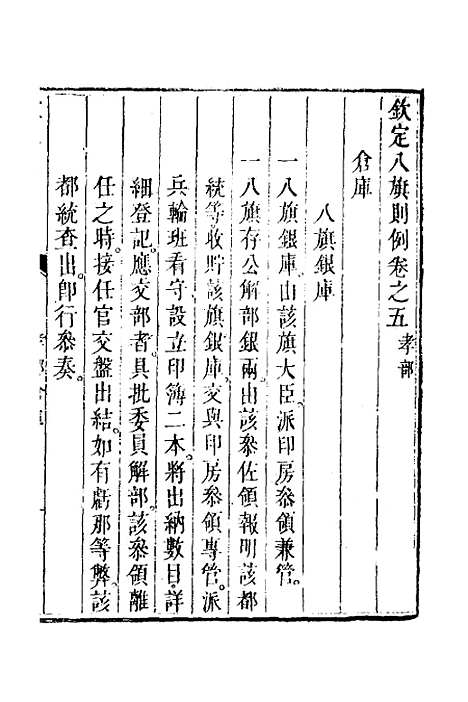 欽定八旗則例卷之五 孝部
倉庫
八旗銀庫
一八旗銀庫。由該旗大臣。派印房叅領兼管。
一八旗存公解部銀兩。由該叅佐領報明該都
統等收貯該旗銀庫。交與印房叅領專管。派
兵輪班看守。設立印簿二本。將出納數目。詳
細登記。應交部者。具批委員解部。該叅領離
任之時。接任官交盤出結。如有虧那等弊。該
都統查出。卽行叅奏。